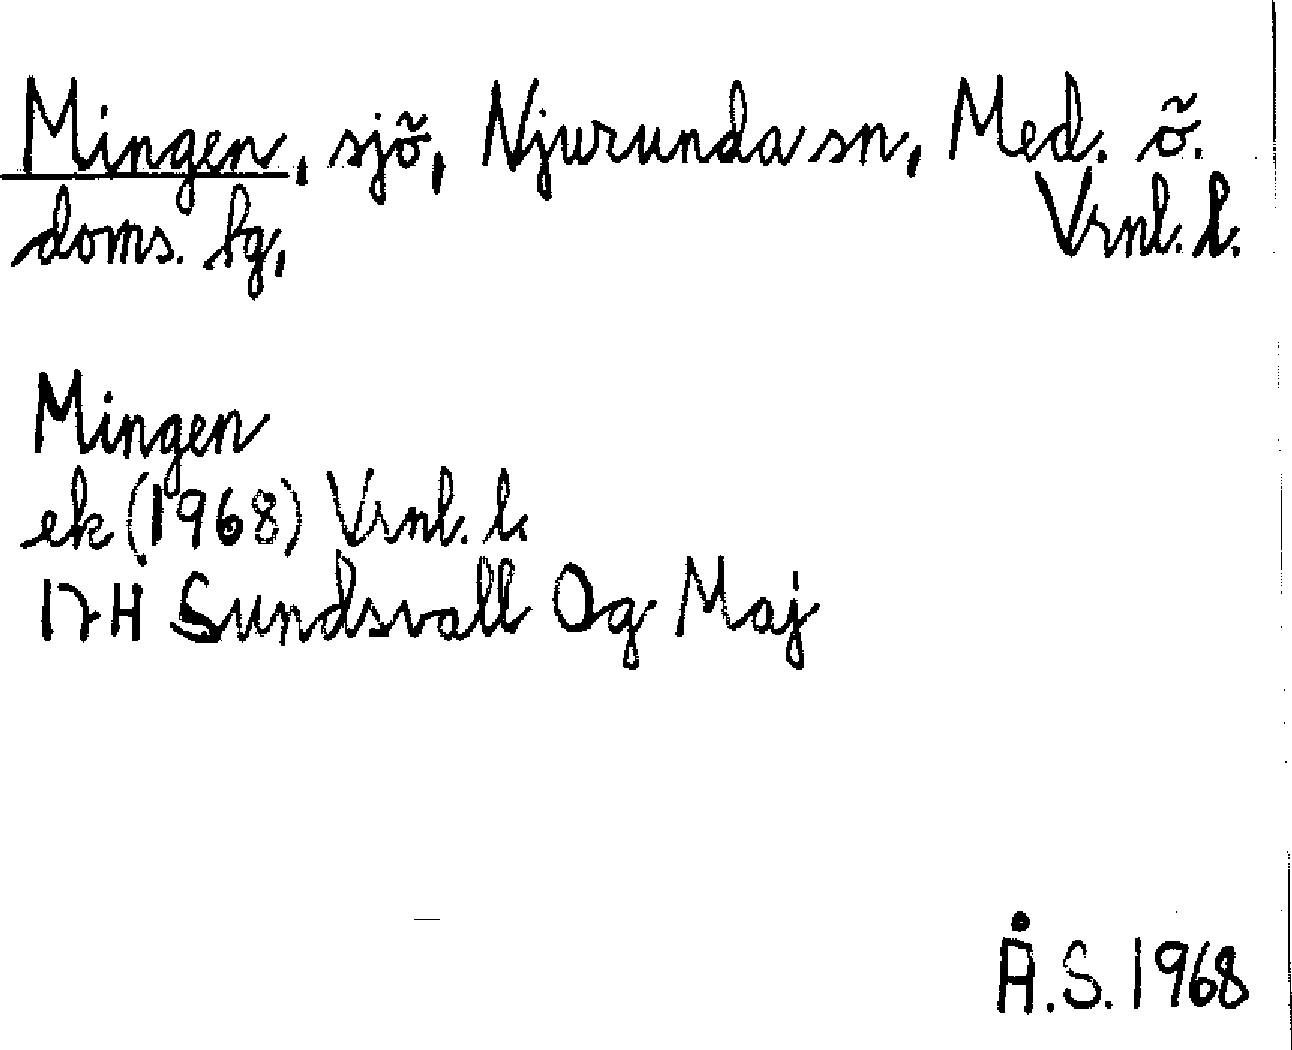 Mingen, sjö, Njurunda sn, Med. ö.
doms. sg, Vrnl. l.
Mingen
ek (1968) Vrnl. l.
17H Sundsvall Og Maj
Å.S. 1968